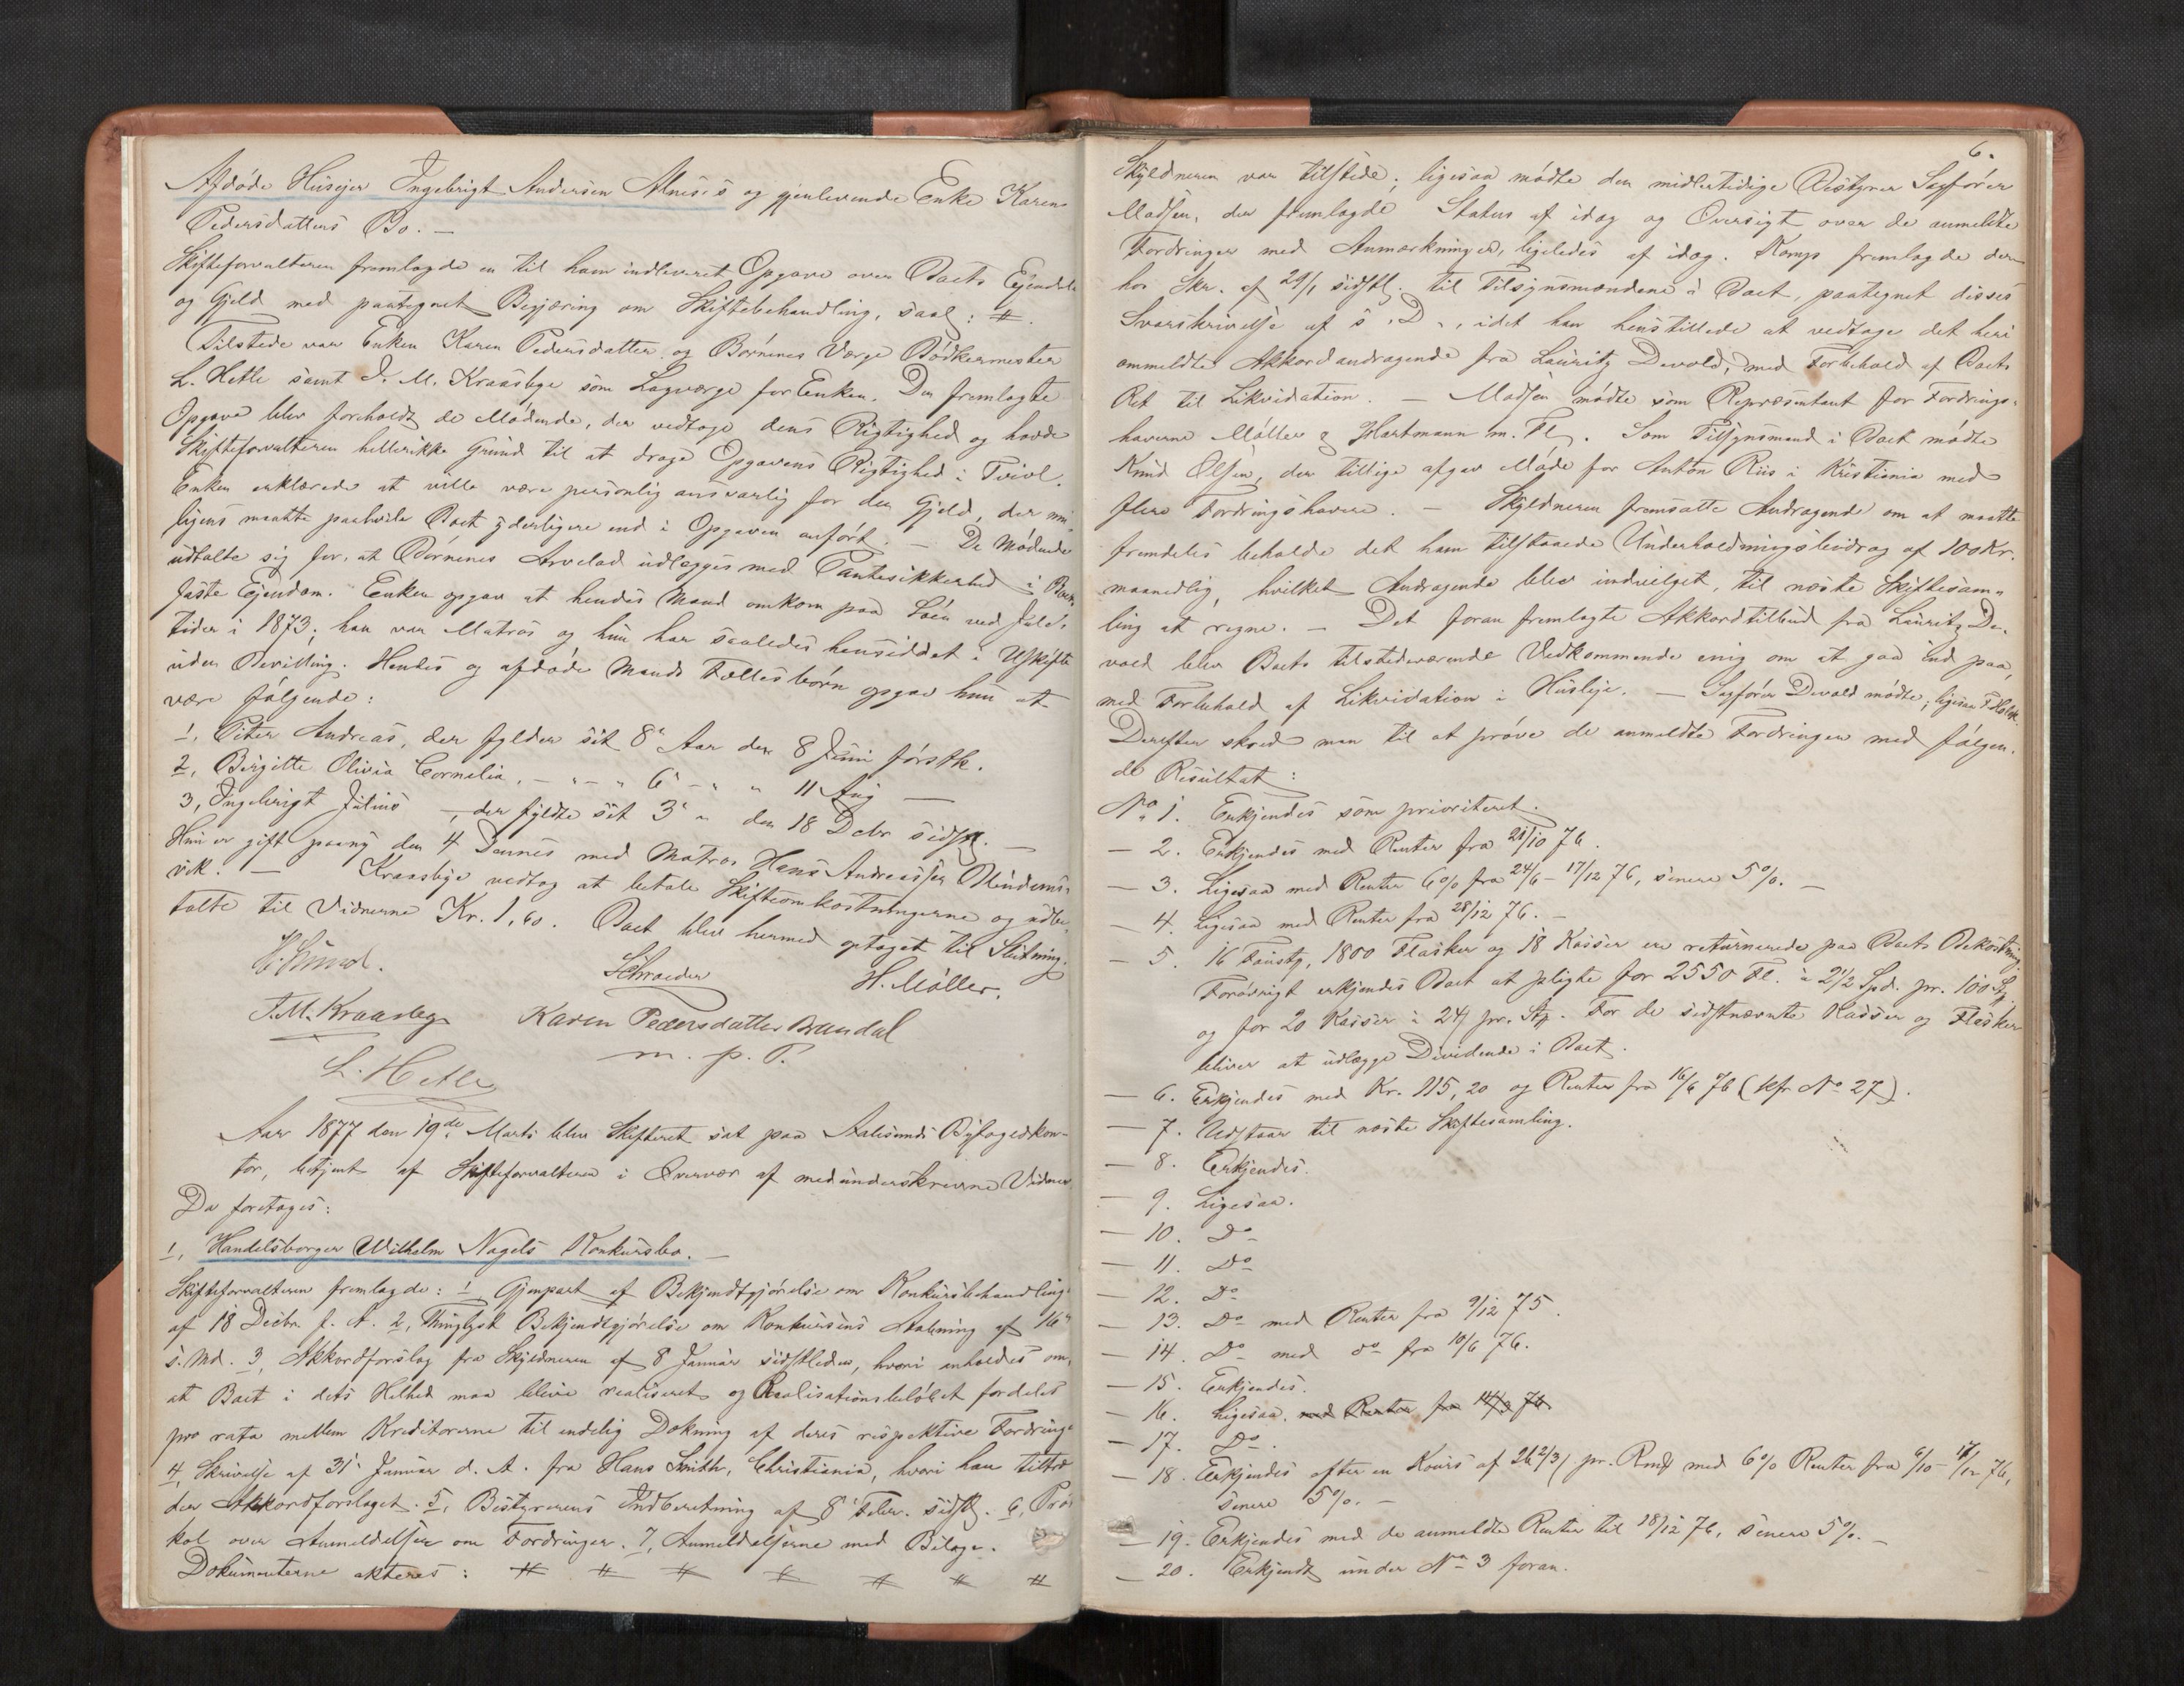 Afdøde Huseier Ingebrigt Andersen Alneses og gjenlevende Enke Karen
Pedersdatters Bo. —
Skifteforvalteren fremlagde en til ham indleveret Opgave over Boets Eiendele
og Gjeld med paategnet Begjæring om Skiftebehandling, saal: #.
Tilstede var Enken Karen Pedersdatter og Børnenes Værge Bødkermester
L. Hetle samt J. M. Kraasbye som Lagværge for Enken. Den fremlagte
Opgave blev foreholdt de Mødende, der vedtoge dens Rigtighed og havde
Skifteforvalteren hellerikke Grund til at drage Opgavens Rigtighed i Tvivl.
Enken erklærede at ville være personlig ansvarlig for den Gjeld, der mu-
ligens maatte paahvile Boet yderligere end i Opgaven anført. — De Mødende
udtalte sig for, at Børnenes Arvelod udlægges med Pantesikkerhed i Boets
faste Eiendom. Enken opgav at hendes Mand omkom paa Søen ved Jule-
tider i 1873; han var Matros og hun har saaledes hensiddet i Uskifte
uden Bevilling. Hendes og afdøde Mands Fællesbørn opgav hun at
være følgende:
1, Peter Andreas, der fylder sit 8de Aar den 8 Juni førstk.
2, Birgitte Olivia Cornelia, — " — " 6 " — " " 11 Aug —
3, Ingebrigt Julius —, der fyldte sit 3 " " den 18 Debr sidstl. —
Hun er gift paany den 4 Dennes med Matros Hans Andreassen
vik. — Kraasbye vedtog at betale Skifteomkostningerne og udbe-
talte til Vidnerne Kr. 1,60. Boet blev hermed optaget til Slutning.
Schroeder H. Møller.
J. M. Kraasbye Karen Pedersdatter Brandal
m. p. P.
L. Hetle
Aar 1877 den 19de Marts blev Skifteret sat paa Aalesunds Byfogedkon-
tor, betjent af Skifteforvalteren i Overvær af medunderskrevne Vidner.
Da foretoges:
1, Handelsborger Wilhelm Nagels Konkursbo. —
Skifteforvalteren fremlagde: 1, Gjenpart af Bekjendtgjørelse om Konkursbehandling
af 18 Decbr. f. A. 2, Thinglyst Bekjendtgjørelse om Konkursens Aabning af 16"
s. Md. 3, Akkordforslag fra Skyldneren af 8 Januar sidstleden, hvori anholdes om,
at Boet i dets Helhed maa blive realiseret og Realisationsbeløbet fordeles
pro rata mellem Kreditorerne til endelig Dækning af deres respektive Fordring.
4, Skrivelse af 31" Januar d. A. fra Hans Smith, Christiania, hvori han tiltræ
der Akkordforslaget. 5, Bestyrerens Indberetning af 8" Febr. sidstl. 6, Proto
kol over Anmeldelser om Fordringer. 7, Anmeldelserne med Bilage.
Dokumenterne akteres: # # # # # # #
6.
Skyldneren var tilstede; ligesaa mødte den midlertidige Bestyrer Sagfører
Madsen, der fremlagde Status af idag og Oversigt over de anmeldte
Fordringer med Anmærkninger, ligeledes af idag. Komp fremlagde der-
hos Skr. af 29/1 sidstl. til Tilsynsmændene i Boet, paategnet disses
Svarskrivelse af s. D., idet han henstillede at vedtage det heri
ommeldte Akkordandragende fra Lauritz Devold, med Forbehold af Boets
Ret til Likvidation. — Madsen mødte som Repræsentant for Fordrings-
haverne Møller & Hartmann m. Fl. Som Tilsynsmand i Boet mødte
Knud Olsen, der tillige afgav Møde for Anton Riis i Kristiania med
flere Fordringshavere. — Skyldneren fremsatte Andragende om at maatte
fremdeles beholde det ham tilstaaede Underholdningsbidrag af 100 Kr.
maanedlig, hvilket Andragende blev indvilget, til næste Skiftesam-
ling at regne. — Det foran fremlagte Akkordtilbud fra Lauritz De-
vold blev Boets tilstedeværende Vedkommende enig om at gaa ind paa,
med Forbehold af Likvidation i Husleje. — Sagfører Devold mødte, ligesaa
Derefter skred man til at prøve de anmeldte Fordringer med følgen-
de Resultat:
No 1. Erkjendes som prioriteret.
— 2. Erkjendes med Renter fra 21/10 76.
— 3. Ligesaa med Renter 6% fra 24/6 - 17/12 76, senere 5%. —
— 4. Ligesaa med Renter fra 28/12 76. —
— 5. 16 Fustg, 1800 Flasker og 18 Kasser ere returnerede paa Boets Bekostning.
Forøvrigt erkjendes Boet at pligte for 2550 Fl. à 2 1/2 Spd. pr. 100 St.
og for 20 Kasser à 24 pr. St. For de sidstnævnte Kasser og Flasker
bliver at udlægge Dividende i Boet.
— 6. Erkjendes med Kr. 115,20 og Renter fra 16/6 76 (kfr No 27).
— 7. Udstaar til næste Skiftesamling.
— 8. Erkjendes.
— 9. Ligesaa.
— 10. Do
— 11. Do
— 12. Do
— 13. Do med Renter fra 9/12 75.
— 14. Do med do fra 10/6 76.
— 15. Erkjendes.
— 16. Ligesaa. med Renter fra 14/3 76
— 17. Do.
— 18. Erkjendes efter en Kours af 26 2/3 pr. Rm med 6% Renter fra 6/10 - 17/12 76,
senere 5%. —
— 19. Erkjendes med de anmeldte Renter til 18/12 76, senere 5%. —
— 20. Erkjendt under No 3 foran.